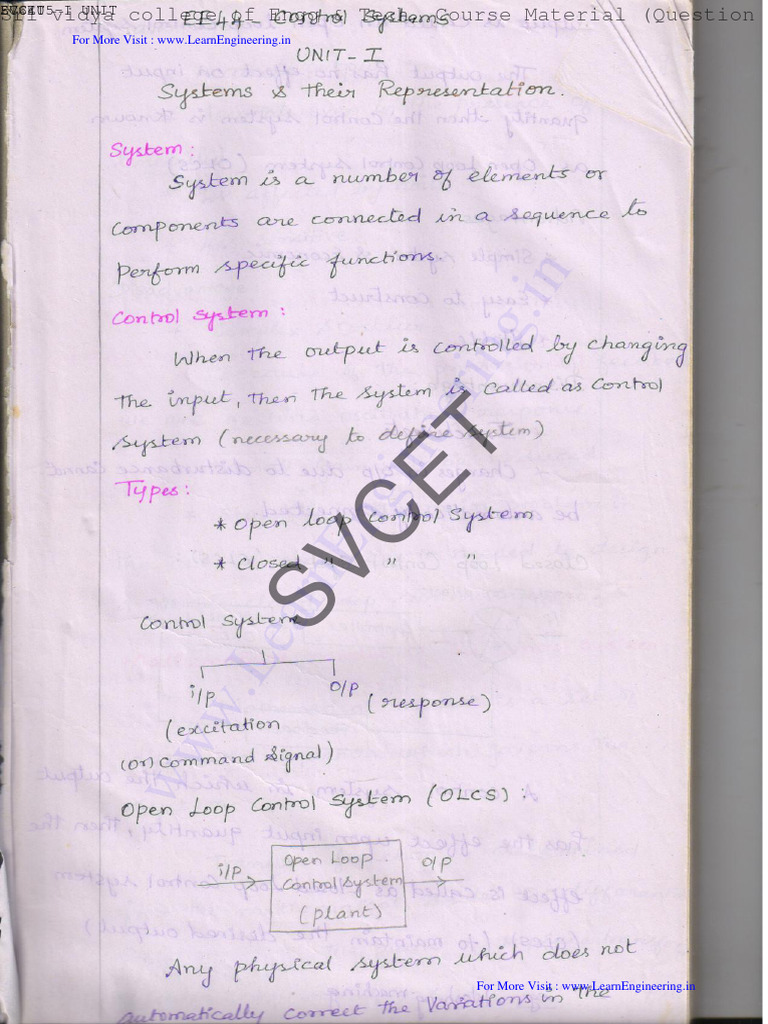 Sri Vidya college of Engg & Tech, Course Material (Question
UNIT
Control Systems
For More Visit : www.LearnEngineering.in
UNIT-I
Systems & their Representation.
System:
System is a number of elements or
components are connected in a sequence to
perform specific functions.
Control system:
When the output is controlled by changing
the input, then the system is called as control
system (necessary to define system)
Types:
* Open loop control System
* Closed " " "
Control System
i/p
o/p
(response)
(excitation
(or) command signal)
Open Loop Control System (OLCS):
i/p
Open Loop
Control System
(plant)
o/p
Any physical system which does not
automatically correct the variations in the
For More Visit : www.LearnEngineering.in
SVCET
www.LearnEngineering.in